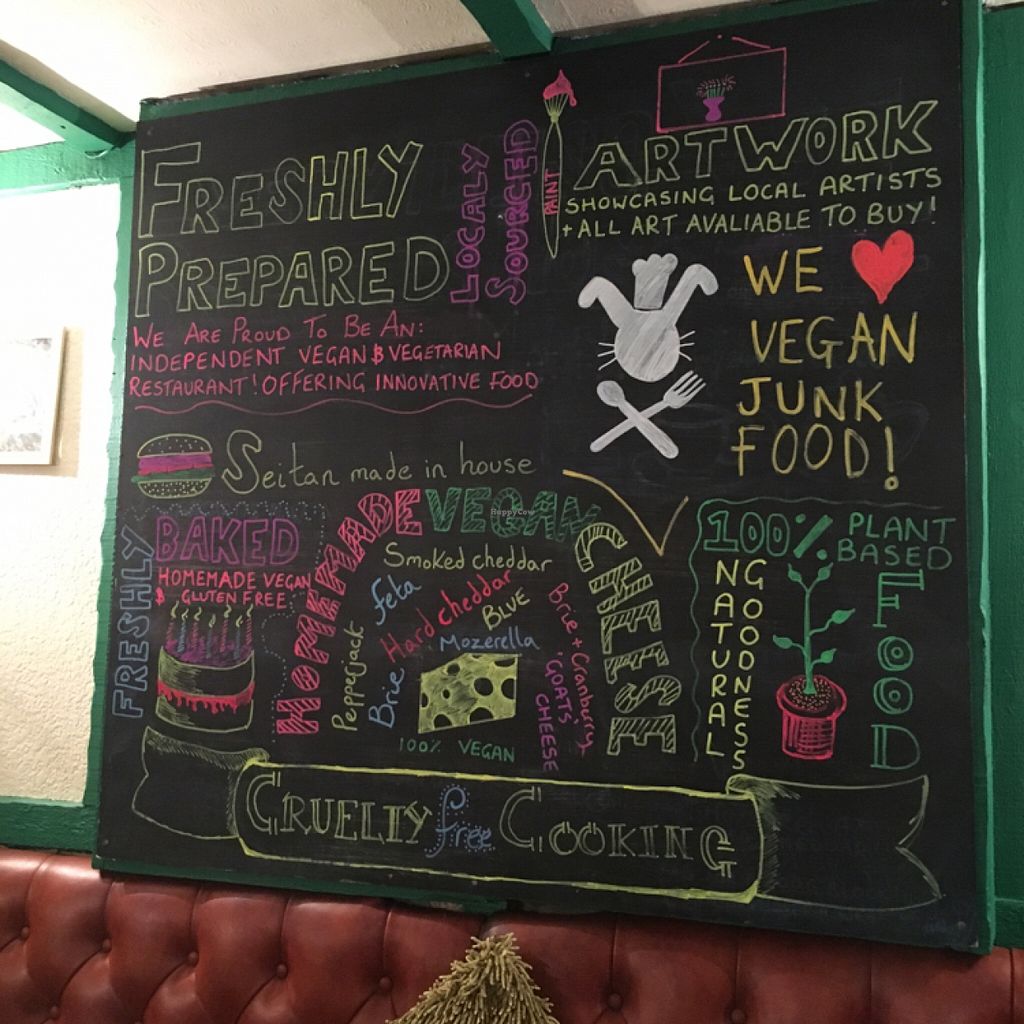 FRESHLY
PREPARED
LOCALY
SOURCED
PAINT
ARTWORK
SHOWCASING LOCAL ARTISTS
+ ALL ART AVALIABLE TO BUY!
WE ARE PROUD TO BE AN:
INDEPENDENT VEGAN & VEGETARIAN
RESTAURANT! OFFERING INNOVATIVE FOOD
WE ♥
VEGAN
JUNK
FOOD!
Seitan made in house
FRESHLY
BAKED
HOMEMADE VEGAN
& GLUTEN FREE
HOMEMADE VEGAN CHEESE
HappyCow
Smoked cheddar
feta
Hard cheddar
BLUE
Mozerella
Pepperjack
Brie
Brie + Cranberry
'GOATS'
CHEESE
100% VEGAN
100% PLANT
BASED
FOOD
NATURAL
GOODNESS
CRUELTY free COOKING